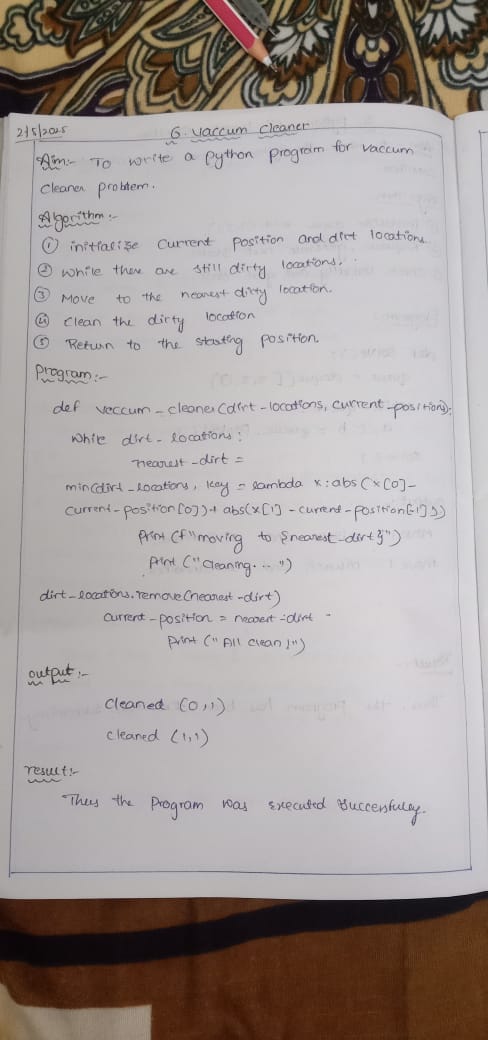 2/5/2025
6. Vaccum Cleaner
Aim:- To write a python program for vaccum
cleaner problem.
Algorithm:-
① initialize current position and dirt locations
② while there are still dirty locations.
③ Move to the nearest dirty location.
④ clean the dirty location
⑤ Return to the starting position.
Program:-
def veccum-cleaner(dirt-locations, current-position):
while dirt-locations:
nearest-dirt =
min(dirt-locations, key = lambda x: abs(x[0]-
current-position[0])+ abs(x[1]-current-position[1]))
print(f"moving to {nearest-dirt}")
print("cleaning...")
dirt-locations.remove(nearest-dirt)
current-position = nearest-dirt
Print("All clean!")
output:-
cleaned (0,1)
cleaned (1,1)
result:-
Thus the program was executed successfully.